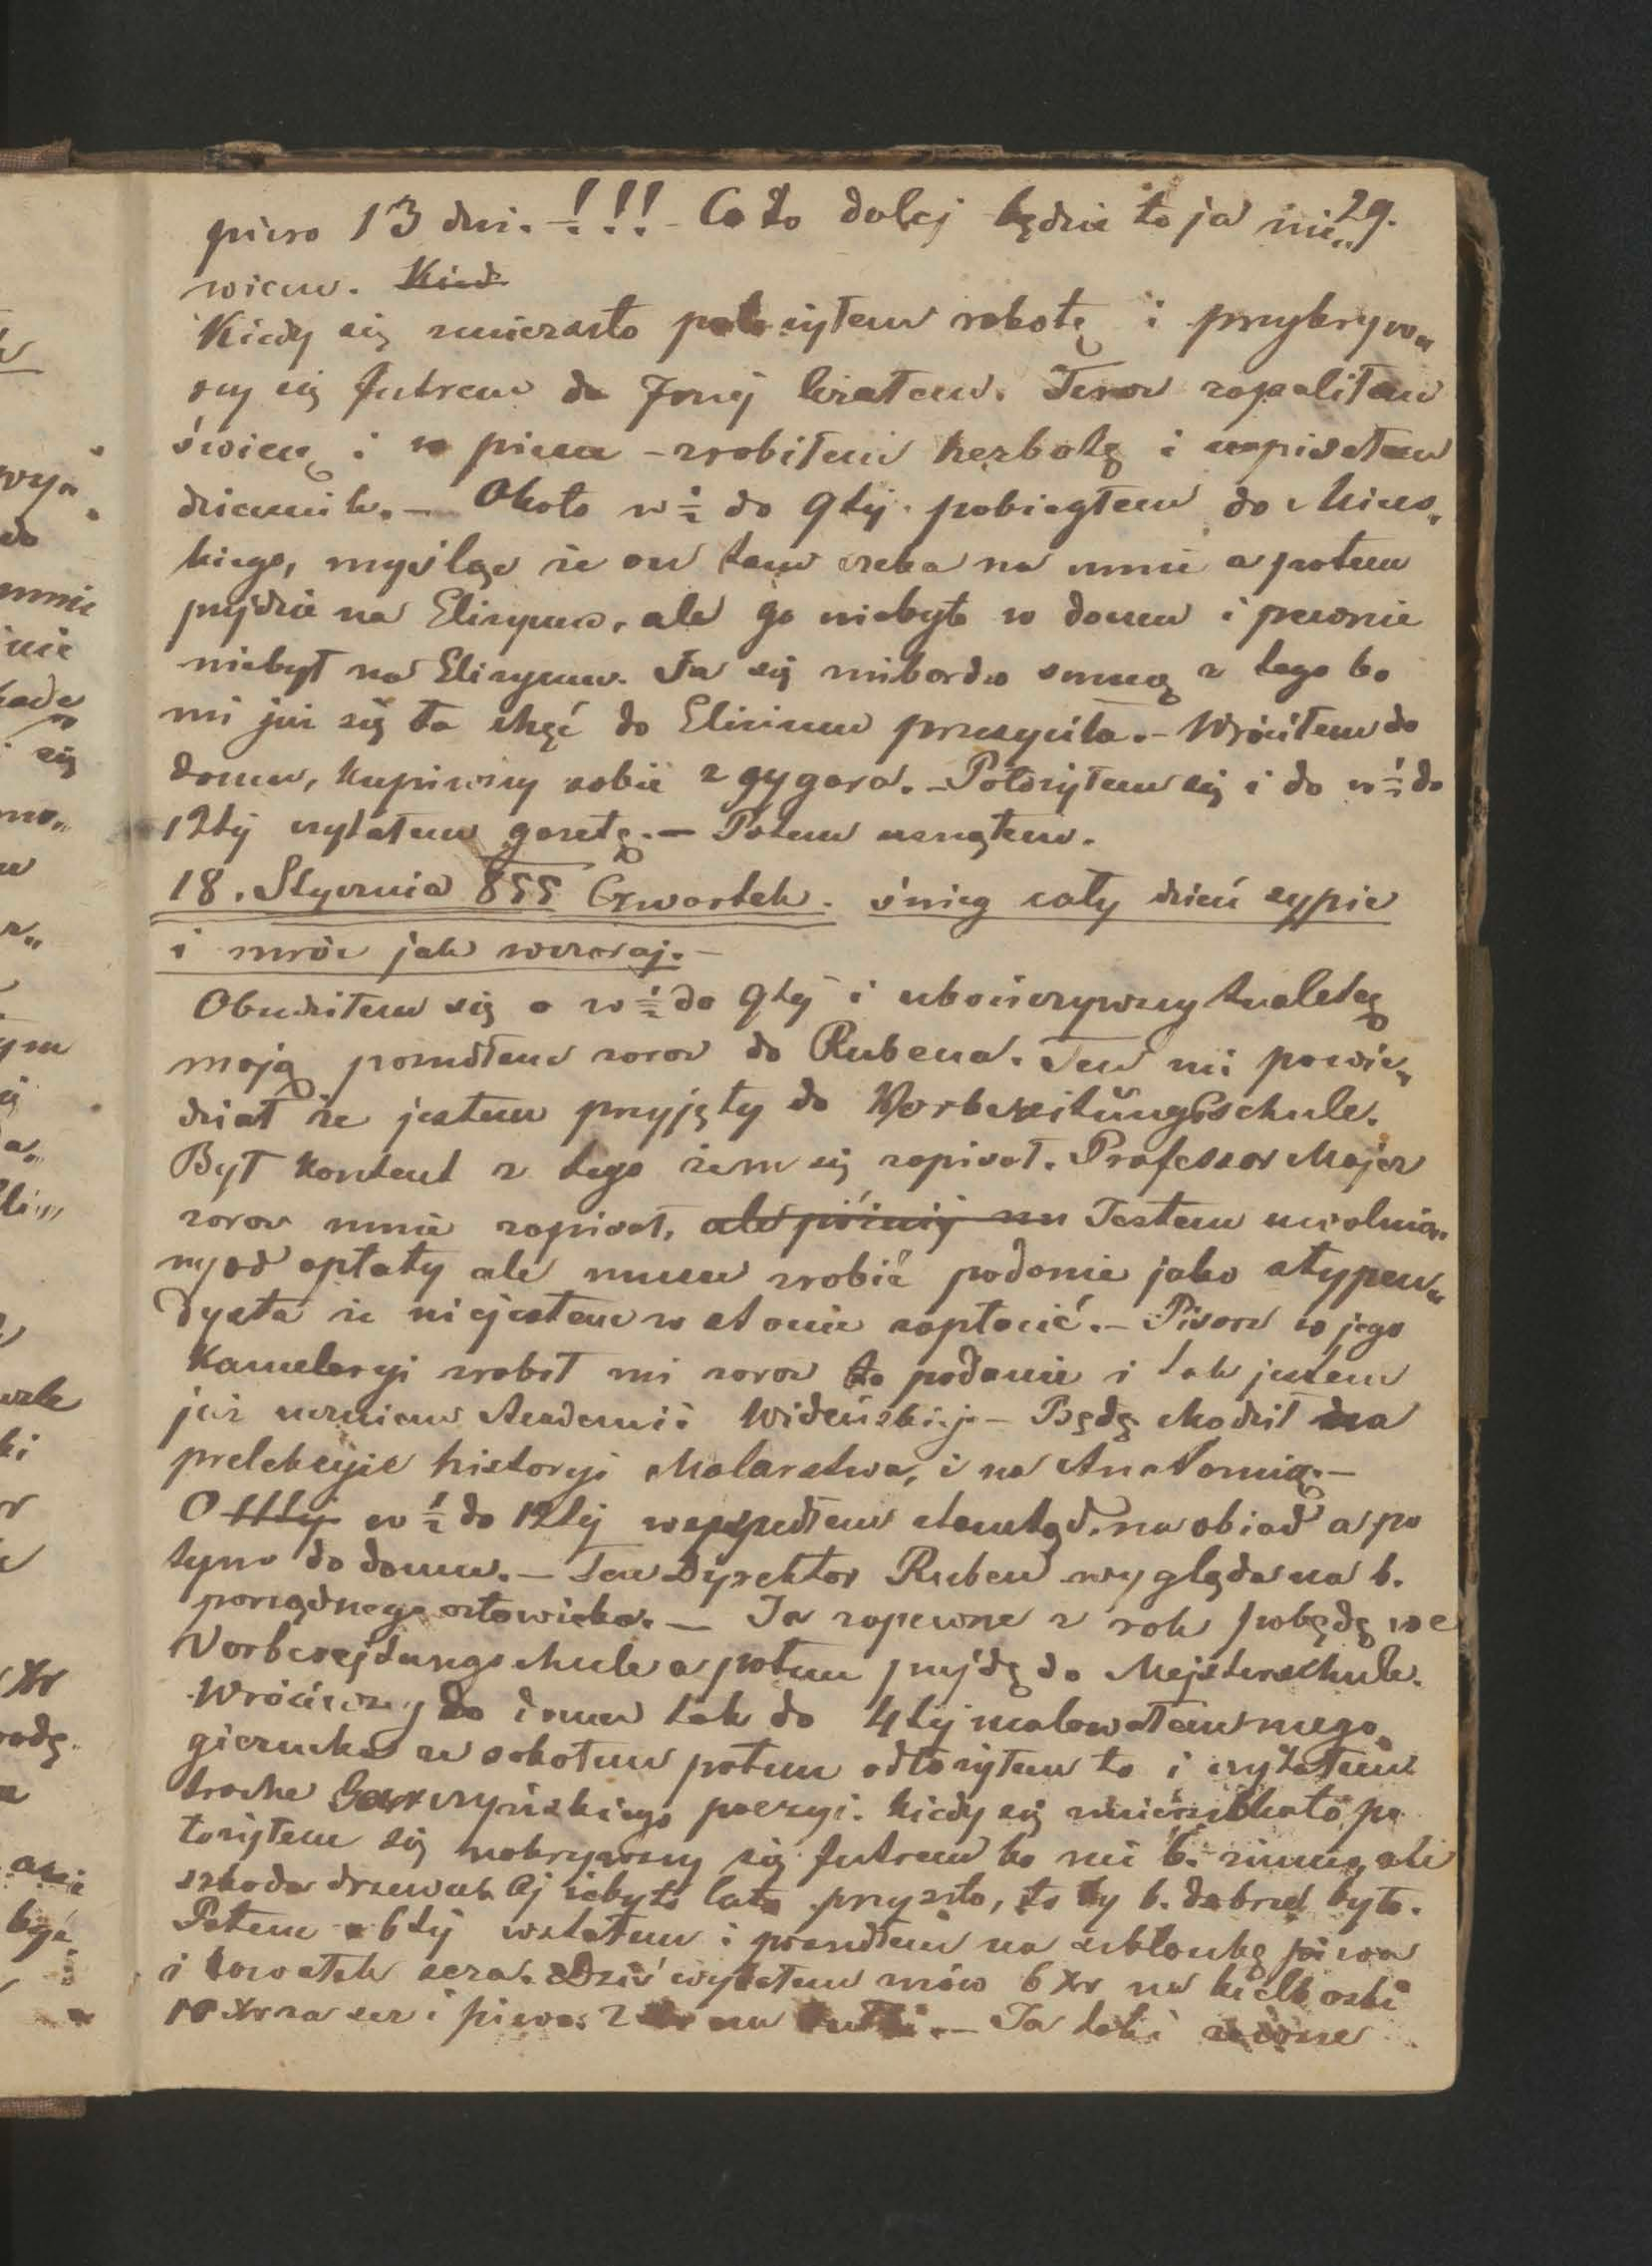 29.
piero 13 dni. – !!! – Co to dalej będzie to ja nie„
wiem. Kied
Kiedy się zmierzchło położyłem robotę i przykryw„
szy się futrem do 7mej leżałem. Teraz zapaliłem
świecę i w piecu – zrobiłem herbatę i napisałem
dziennik. – Około w ½ do 9tej pobiegłem do Mies„
kiego, myśląc że on tam czeka na mnie a potem
pójdzie na Elizyum, ale go niebyło w domu i pewnie
niebył na Elizyum. Ja się niebardzo smucę z tego bo
mi już się ta chęć do Elizium przesyciła. – Wróciłem do
domu, kupiwszy sobie 2 cygara. – Położyłem się i do w ½ do
12tej czytałem gazetę. – Potem usnąłem.
18. Stycznia 855 Czwartek. śnieg cały dzień sypie
i mróz jak wczoraj. –
Obudziłem się o w ½ do 9tej i ukończywszy tualetę
moją poszedłem zaraz do Rubena. Ten mi powie„
dział że jestem przyjęty do Vorbereitŭngsschule.
Był kontent z tego żem się zapisał. Professor Majer
zaraz mnie zapisał, ale później mu Jestem uwolnio„
ny od opłaty ale muszę zrobić podanie jako stypen„
dysta że niejestem w stanie zapłacić. – Pisarz w jego
Kancelaryi zrobił mi zaraz to podanie i tak jestem
już uczniem Akademii Wideńskiej – Będę chodził na
prelekcyje historyi Malarstwa, i na Anatomią. –
O 11tej w ½ do 12tej wyszedłem stamtąd na obiad a po
tym do domu. – Ten Dyrektor Ruben wygląda na b.
porządnego człowieka. – Ja zapewne z rok pobędę we
Vorberejtungschule a potem pójdę do Mejsterschule.
Wróciwszy do domu tak do 4tej malowałem mego
gierucha ze sokołem potem odłożyłem to i czytałem
trochę Garczyńskiego poezyi. Kiedy się zmierzchało po
łożyłem się nakrywszy się futrem bo mi b. zimno, ale
szkoda drzewa. Oj żeby to lato przyszło, to by b. dobrze było.
Potem o 6tej wstałem i poszedłem na szklankę piwa
i kawałek sera. Dziś wydałem znów 6 xr na kiełbaski
10 xr za ser i piwo. 2 xr na bułki. – Ja taki zawsze